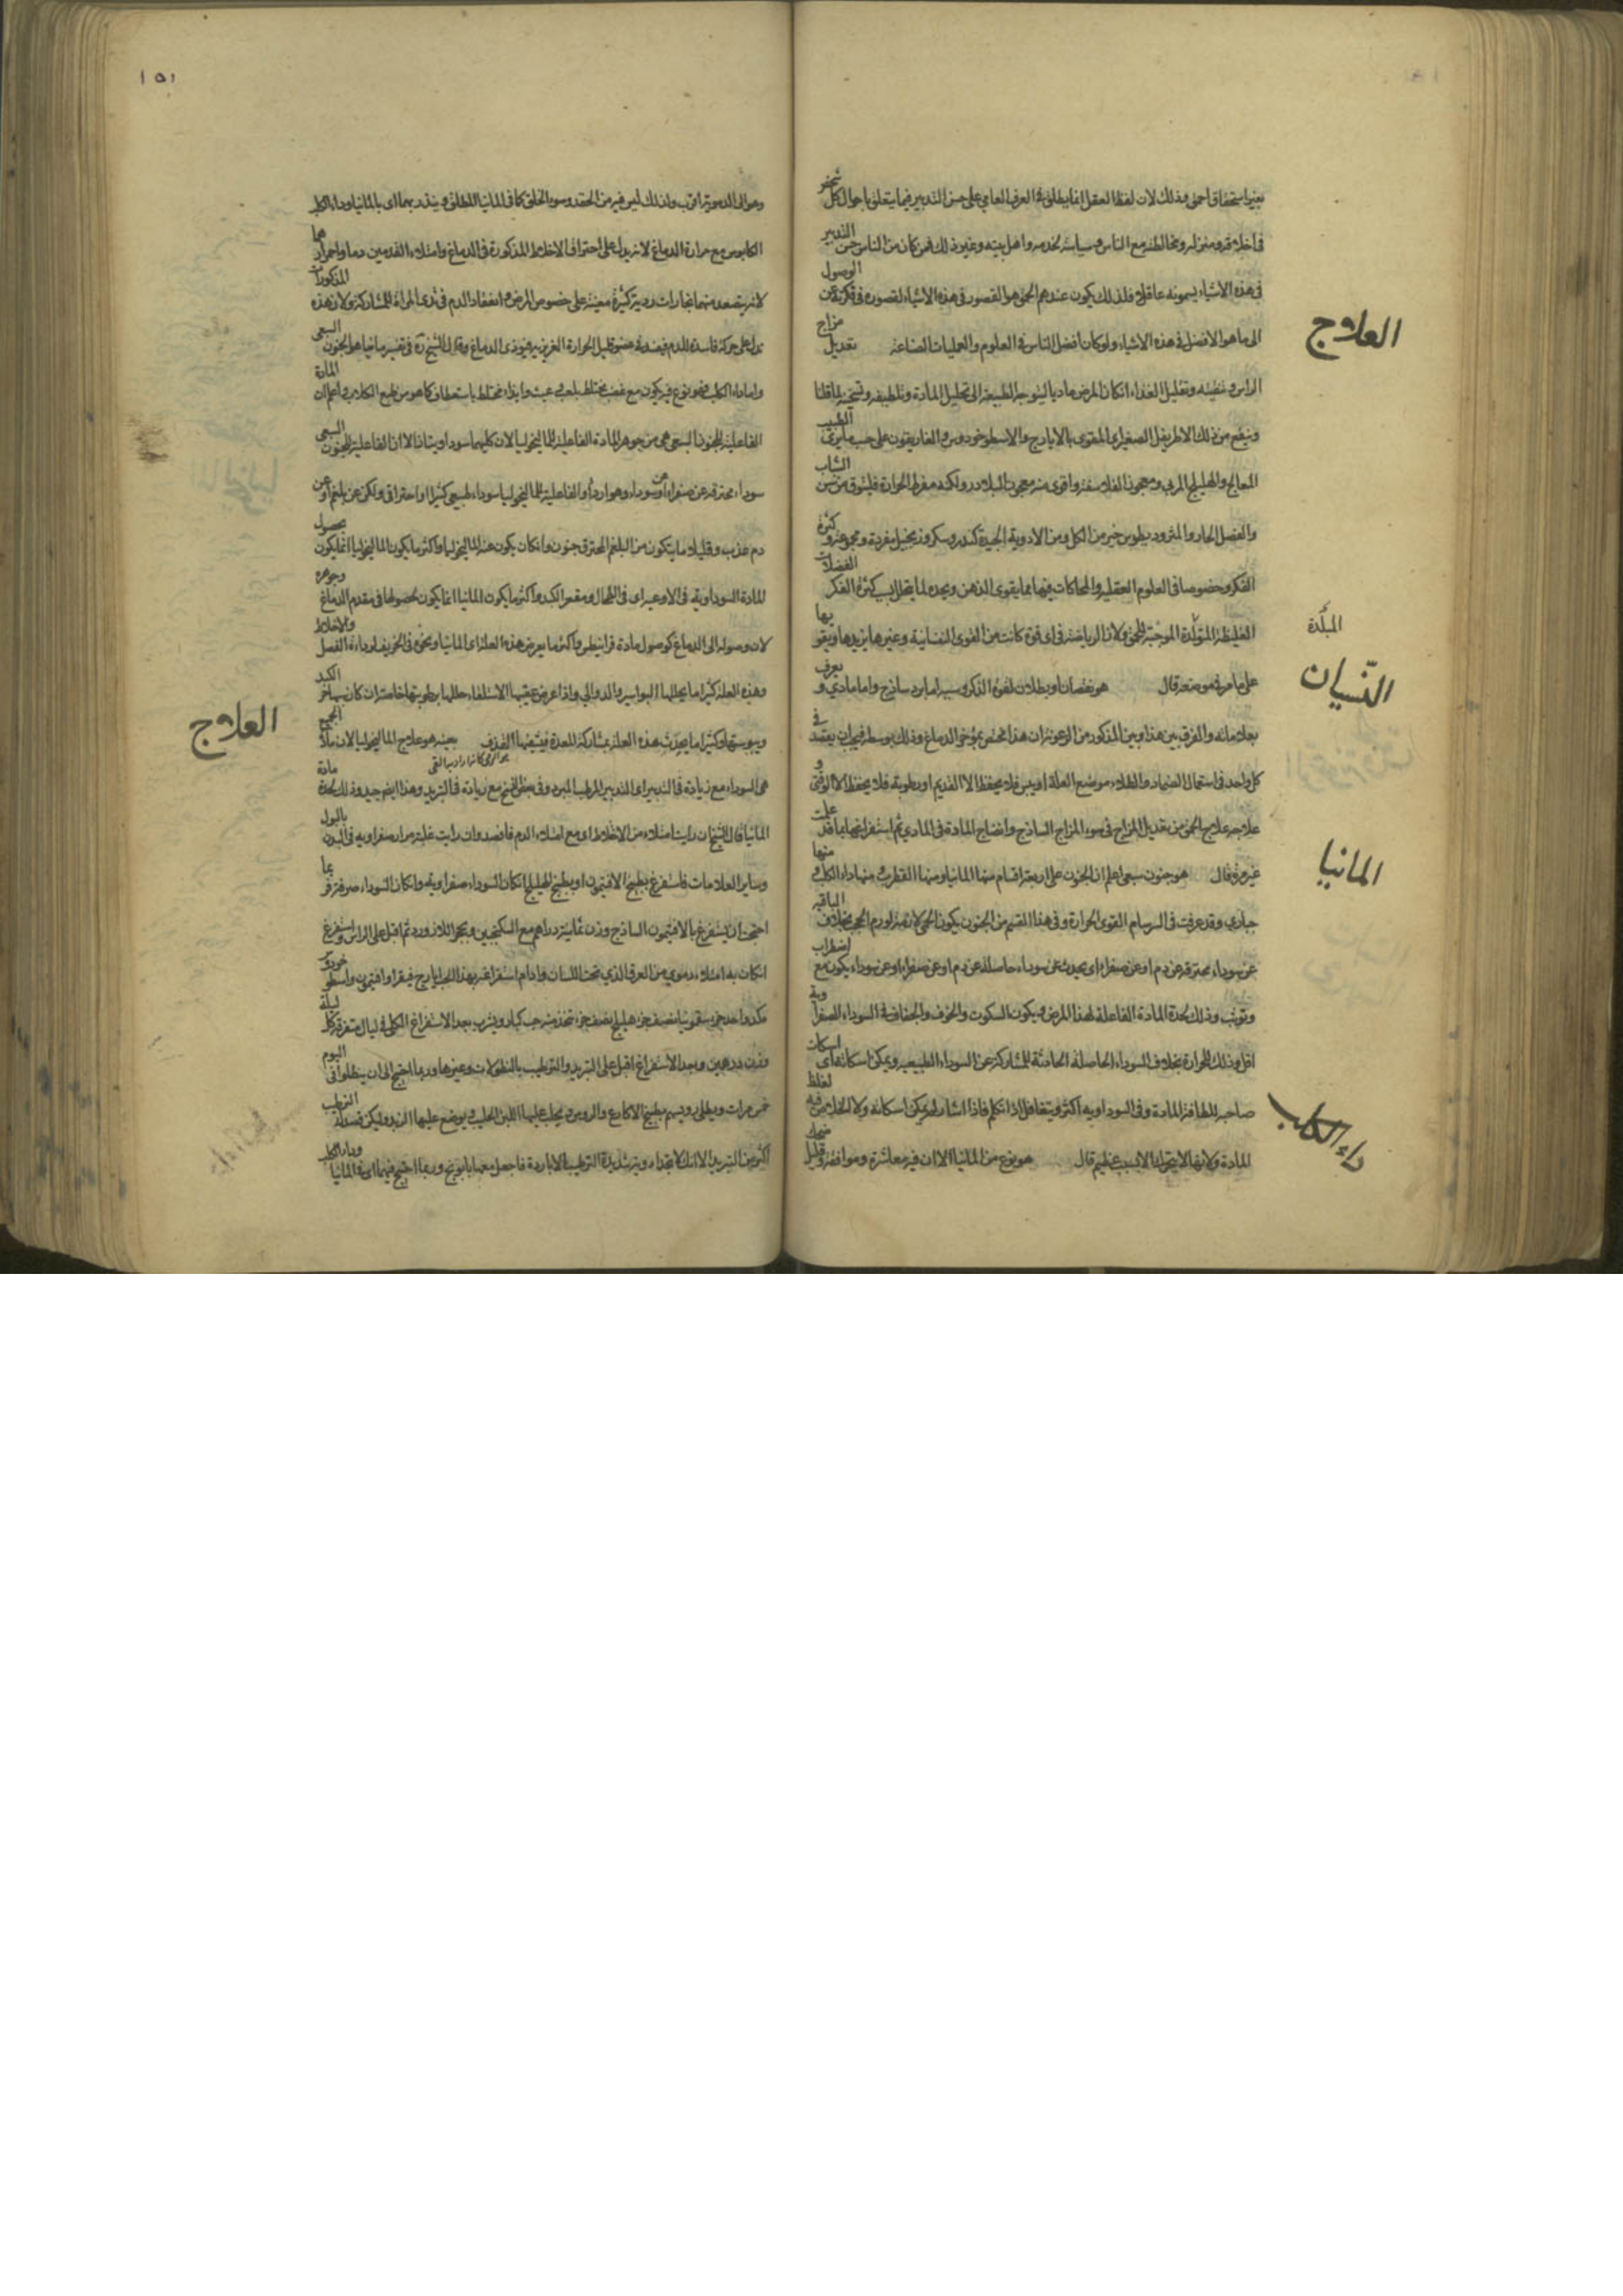 بغير استحقاق احمق وذلك لان لفظ العقل انما يطلق في العرف العامي على حسن التدبير فيما يتعلق باحوال كل شخص
في اخلاقه ومنزله ومخالطته مع الناس وسياسته لخدمه واهل بيته وغير ذلك فمن كان من الناس حسن التدبير
في هذه الاشياء يسمونه عاقلا فلذلك يكون عندهم الحمق هو القصور في هذه الاشياء لقصوره في فكرته عن الوصول
الى ما هو الافضل في هذه الاشياء ولو كان افضل الناس في العلوم والعمليات الصناعية تعديل مزاج
العلاج
الراس وتنقيته وتقليل الغذاء ان كان المرض ماديا ليتوجه الطبيعة الى تحليل المادة وتلطيفه وتسخينه لما قلنا
وينفع من ذلك الاطريفل الصغير اي المقوى بالايارج والاسطوخودوس والغاريقون على حسب ما يرى الطبيب
المعالج والهليلج المربى ومعجون الفلاسفة واقوى منه معجون البلادر ولكنه مفرط الحرارة فليتوق منه سن الشاب
والفصل الحار والمثروديطوس خير من الكل ومن الادوية الجيدة كندر وسكر وزنجبيل مفردة ومجموعة وكثرة
الفكر وخصوصا في العلوم العقلية والمحاكات فيها مما يقوى الذهن ويحده لما يتحلل بسبب كثرة الفكر الفضلات
الغليظة المتولدة الموجبة للحمق ولان الرياضة في اي قوة كانت من القوى النفسانية وغيرها يزيدها ويقويها
المبلّدة
على ما مر في موضعه قال هو نقصان او بطلان لقوة الذكر وسببه اما برد ساذج واما مادي ويعرف
النسيان
بعلاماته والفرق بين هذا وبين المذكور من الرعونة ان هذا مختص بمؤخر الدماغ وذلك بوسطه فيجب ان يعتمد في
كل واحد في استعمال الضماد والطلاء موضع العلة او يبس فلا يحفظ الا القديم او رطوبة فلا يحفظ الا الوقتي و
علاجه علاج الحمق من تعديل المزاج في سوء المزاج الساذج وانضاج المادة في المادي ثم استفراغها بما قد علمت
غير مرة قال هو جنون سبعي اعلم ان الجنون على اربعة اقسام منها المانيا ومنها القطرب ومنها داء الكلب ومنها
المانيا
صباري وقد عرفت في السرسام القوي الحرارة وفي هذا القسم من الجنون يكون الحمى لازمة لورم الحجب بخلاف الباقية
عن سوداء محترقة عن دم او عن صفراء اي يحدث عن سوداء حاصلة عن دم او عن صفراء او عن سوداء يكون مع اضطراب
وتوثب وذلك لحدة المادة الفاعلة لهذا المرض ويكون السكوت والخوف والجفاف في السوداء للصفراوية
اقل وذلك للحرارة بخلاف السوداء الحاصلة الحادثة للمشاركة عن السوداء الطبيعية ويمكن اسكاته اي اسكات
صاحبه للطافة المادة وفي السوداوية اكثر ويتغافل اذا تكلم فاذا انشا لم يمكن اسكاته ولا الخلاص منه لغلظ
المادة ولانها لا يتحرك الا لسبب عظيم قال هو نوع من المانيا الا ان فيه معاشرة وموافقة وقليل ضحك
داء الكلب
١٥١
وهو الى الدموية اقرب ولذلك ليس فيه من الحقد وسوء الخلق كما في المانيا المطلق وينذر بهما اي بالمانيا وداء الكلب
الكابوس مع حرارة الدماغ لانه يدل على احتراق الاخلاط المذكورة في الدماغ وامتلاء القدمين دما واحمرارهما
لانه يتصعد منهما بخارات ردية كثيرة معينة على خصوص المرض وانعقاد الدم في ثدي المراة للمشاركة ولان هذه المذكورات
تدل على حركة فاسدة للدم فيصعد في عضو قليل الحرارة الغريزية فيؤذي الدماغ وقال الشيخ ره في تفسير مانيا هو الجنون السبعي
واما داء الكلب فهو نوع فيه يكون مع غضب مختلط بلعب وعبث وايذاء مختلط باستعطاف كما هو من طبع الكلاب واعلم ان المادة
الفاعلية للجنون السبعي هي من جوهر المادة الفاعلية للماليخوليا لان كليهما سوداويتان الا ان الفاعلية للجنون السبعي
سوداء محترقة عن صفراء او عن سوداء وهو اردا والفاعلية للماليخوليا سوداء طبيعي كثيرا او احتراقي ولكن عن بلغم او عن
دم عذب وقليلا ما يتكون من البلغم المحترق جنون وان كان يكون عنه الماليخوليا واكثر ما يكون الماليخوليا انما يكون بحصول
المادة السوداوية في الاوعية اي في الطحال ومقعر الكبد واكثر ما يكون المانيا انما يكون بحصولها في مقدم الدماغ وجوهره
لان وصوله الى الدماغ كوصول مادة قرانيطس واكثر ما يعرض هذه العلة اي المانيا ونحوه في الخريف لرداءة الفصل والاخلاط
وهذه العلة كثيرا ما يحللها البواسير والدوالي واذا عرض عقيبها الاستسقاء حللها برطوبتها خاصة ان كان بها حر الكبد
ويبوستها وكثيرا ما يحدث هذه العلة بمشاركة المعدة فيشفيها القذف بعينه هو علاج الماليخوليا لان مادة الجميع
العلاج
هي السوداء مع زيادة في التدبير اي التدبير المرطب المبرد وفي بعض النسخ مع زيادة في التبريد وهذا ايضا جيد وذلك لحدة مادة
المانيا قال الشيخ ان رايت امتلاء من الاخلاط او مع امتلاء الدم فافصد وان رايت غلبة مرار صفراوية في البدن بالبول
وساير العلامات فاستفرغ بطبيخ الافتيمون او بطبيخ الهليلج ان كان السوداء صفراوية وان كان السوداء صرفة فربما
احتجت ان يستفرغ بالافتيمون الساذج وزن ثمانية دراهم مع السكنجبين وبحجر اللازورد ثم اقبل على الراس واستفرغ
ان كان به امتلاء دموي من العرق الذي تحت اللسان وادام استفراغه بهذا الحب ايارج فيقرا وافتيمون واسطوخودوس
مكد واحد جزء سقمونيا نصف جزء هليلج نصف جزء تتخذ منه حب كبار ويشرب بعد الاستفراغ الكلي في ليال متفرقة كل ليلة
وزن درهمين وبعد الاستفراغ اقبل على التبريد والترطيب بالنطولات وغيرها وربما احتيج الى ان ينطلوا في اليوم
خمس مرات ويطلى رؤسهم بطبيخ الاكارع والرؤس ويحلب عليها اللبن الحليب ويوضع عليها الزبد وليكن قصدك الترطيب
اكثر من التبريد الا انك لا تجد ادوية شديدة الترطيب الا باردة فاجعل معها بابونج وربما احتيج فيهما اي في المانيا وداء الكلب